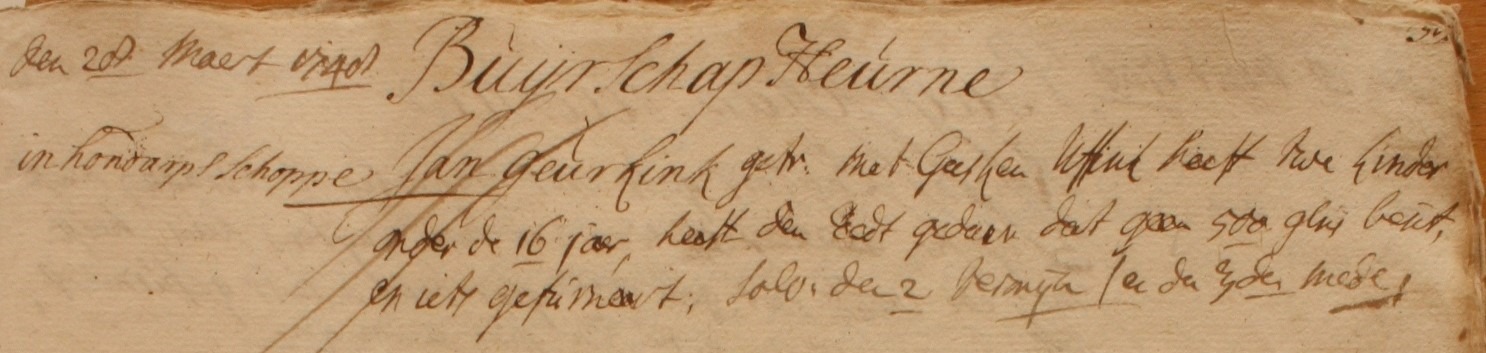 den 28 Maert 1748 Buijrschap Heurne
in hondarps schoppe Jan Geurkink getr. met Geesken Wssink heeft twe kinder
onder de 16 jaer, heeft den Eedt gedaen dat geen 500 gl. besit,
en iets gefurneert; solv. den 2 termijn / en den 3den mede;